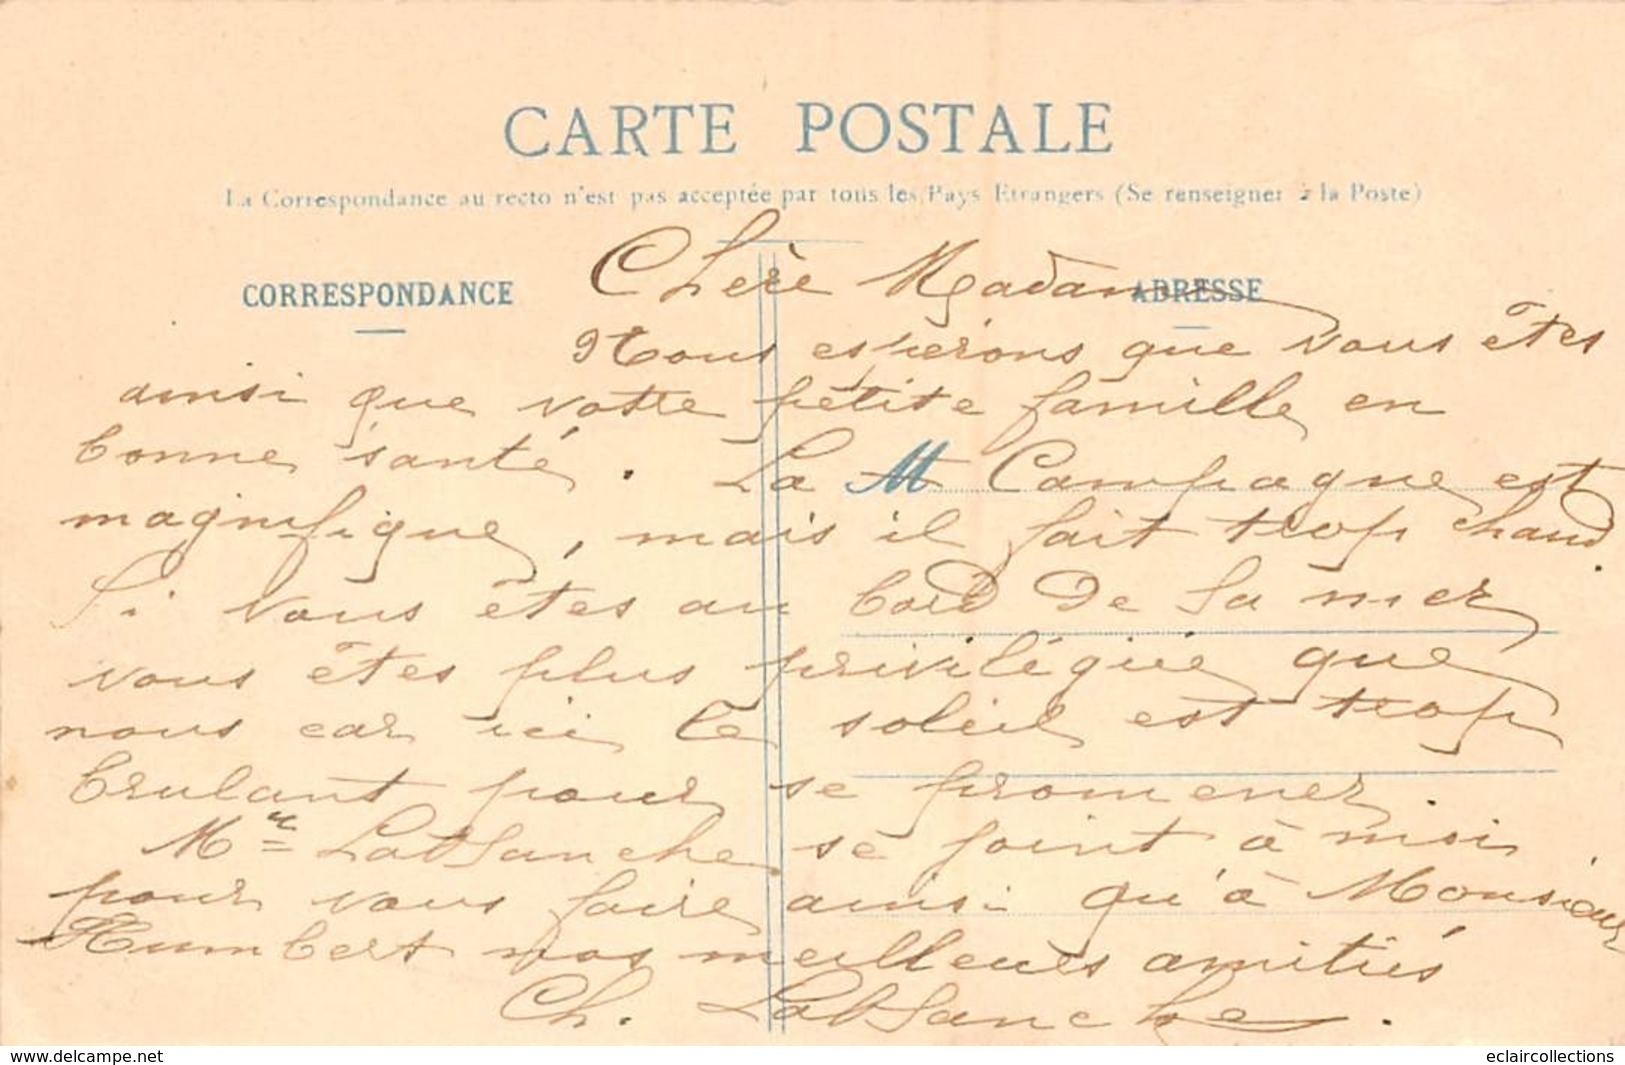 CARTE POSTALE
La Correspondance au recto n'est pas acceptée par tous les Pays Etrangers (Se renseigner à la Poste)
CORRESPONDANCE
ADRESSE
Chère Madame
Nous espérons que vous êtes
ainsi que votre petite famille en
bonne santé. La M Campagne est
magnifique, mais il fait trop chaud.
Si vous êtes au bord de la mer
vous êtes plus privilégiée que
nous car ici le soleil est trop
brulant pour se promener.
Me Lablanche se joint à moi
pour vous faire ainsi qu'à Monsieur
Humbert nos meilleures amitiés
Ch. Lablanche.
www.delcampe.net
eclaircollections